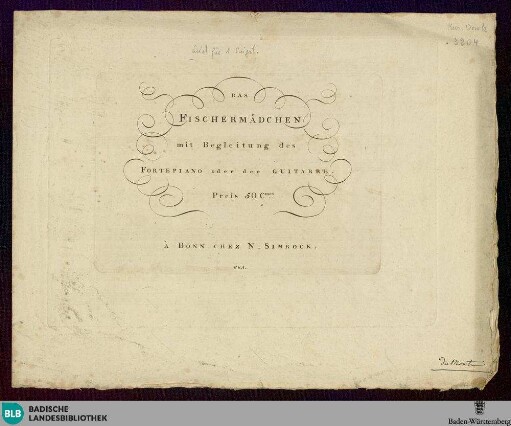 Lied für 1 Singst.
DAS
FISCHERMÄDCHEN
mit Begleitung des
FORTEPIANO oder der GUITARRE.
Preis 50 C
À BONN CHEZ N. SIMROCK.
BLB
BADISCHE
LANDESBIBLIOTHEK
Baden-Württemberg